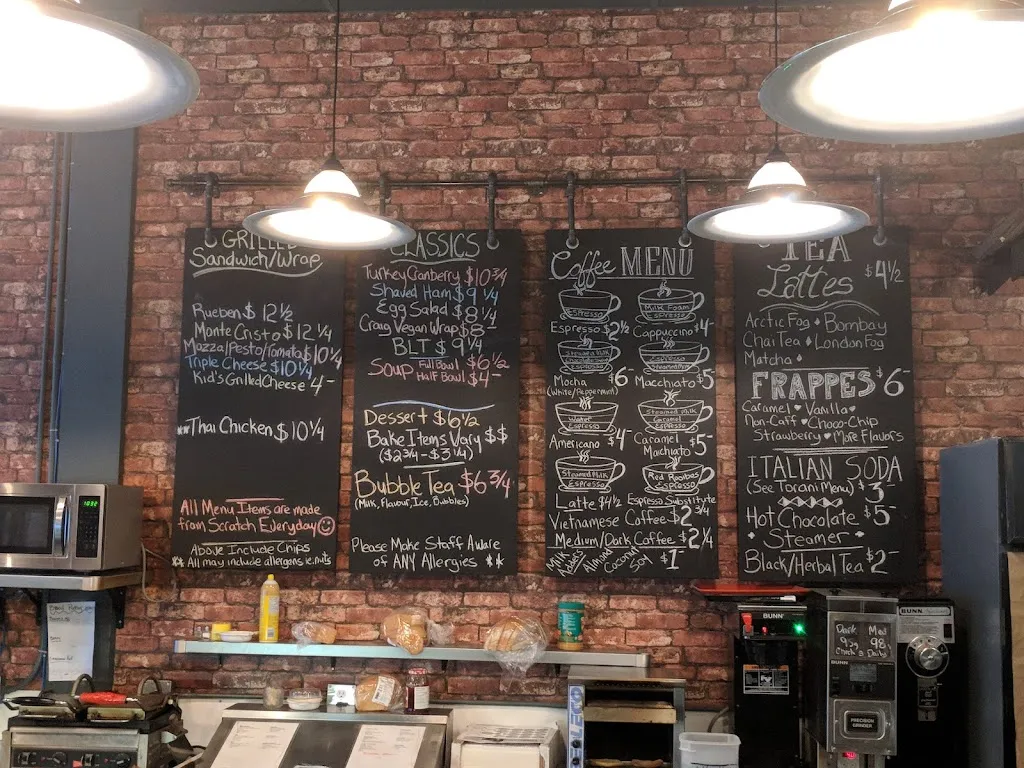 GRILLED
Sandwich/Wrap
Rueben $ 12 1/2
Monte Cristo $ 12 1/4
Mozza/Pesto/Tomato $ 10 1/4
Triple Cheese $ 10 1/4
Kid's Grilled Cheese 4-
Thai Chicken $ 10 1/4
All Menu Items are made
from Scratch Everyday
Above Include Chips
** All may include allergens i.e. nuts
CLASSICS
Turkey Cranberry $ 10 3/4
Shaved Ham $ 9 1/4
Egg Salad $ 8 1/4
Craig Vegan Wrap $ 8-
BLT $ 9 1/4
Soup Full Bowl $ 6 1/2
Half Bowl $ 4-
Dessert $ 6 1/2
Bake Items Vary $$
($2 3/4 - $3 1/4)
Bubble Tea $ 6 3/4
(Milk, Flavour, Ice, Bubbles)
Please Make Staff Aware
of ANY Allergies **
Coffee MENU
Espresso
Milk Foam
Espresso
Espresso $ 2 1/2
Cappuccino $ 4-
Steamed Milk
Espresso
Espresso
Mocha $ 6-
(White/Peppermint)
Macchiato $ 5
Water
Espresso
Steamed Milk
Caramel
Espresso
Americano $ 4-
Caramel
Macchiato $ 5-
Steamed Milk
Espresso
Red Rooibos
Espresso
Latte $ 4 1/2
Espresso Substitute
Vietnamese Coffee $ 2 3/4
Medium/Dark Coffee $ 2 1/4
Milk
Adders
Almond
Coconut
Soy
$ 1-
TEA
Lattes $ 4 1/2
Arctic Fog • Bombay
Chai Tea • London Fog
Matcha •
FRAPPES $ 6-
Caramel • Vanilla •
Non-Caff • Choco-Chip
Strawberry • More Flavors
ITALIAN SODA
(See Torani Menu) $ 3-
Hot Chocolate $ 5-
• Steamer •
Black/Herbal Tea $ 2-
BUNN
BUNN
Dark Med
95 98
Check Daily
BUNN
PRECISION
GRINDER